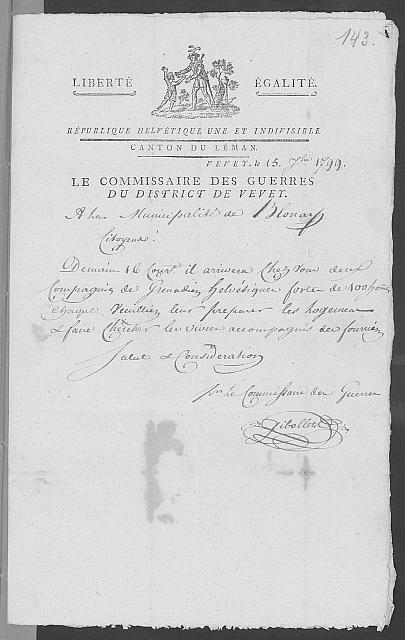 143.
LIBERTÉ ÉGALITÉ.
RÉPUBLIQUE HELVÉTIQUE UNE ET INDIVISIBLE.
CANTON DU LÉMAN.
VEVEY, le 15. 7bre 1799.
LE COMMISSAIRE DES GUERRES
DU DISTRICT DE VEVEY.
A la Municipalité de Blonay
Citoyens!
Demain 16 Cour.t il arrivera chez vous deux
Compagnies de Grenadiers helvétiques forte de 100 hommes
chaque veuillez leur preparer les logemens
& faire chercher les vivres accompagnés de fourriers
Salut & Considération
le Commissaire des Guerres